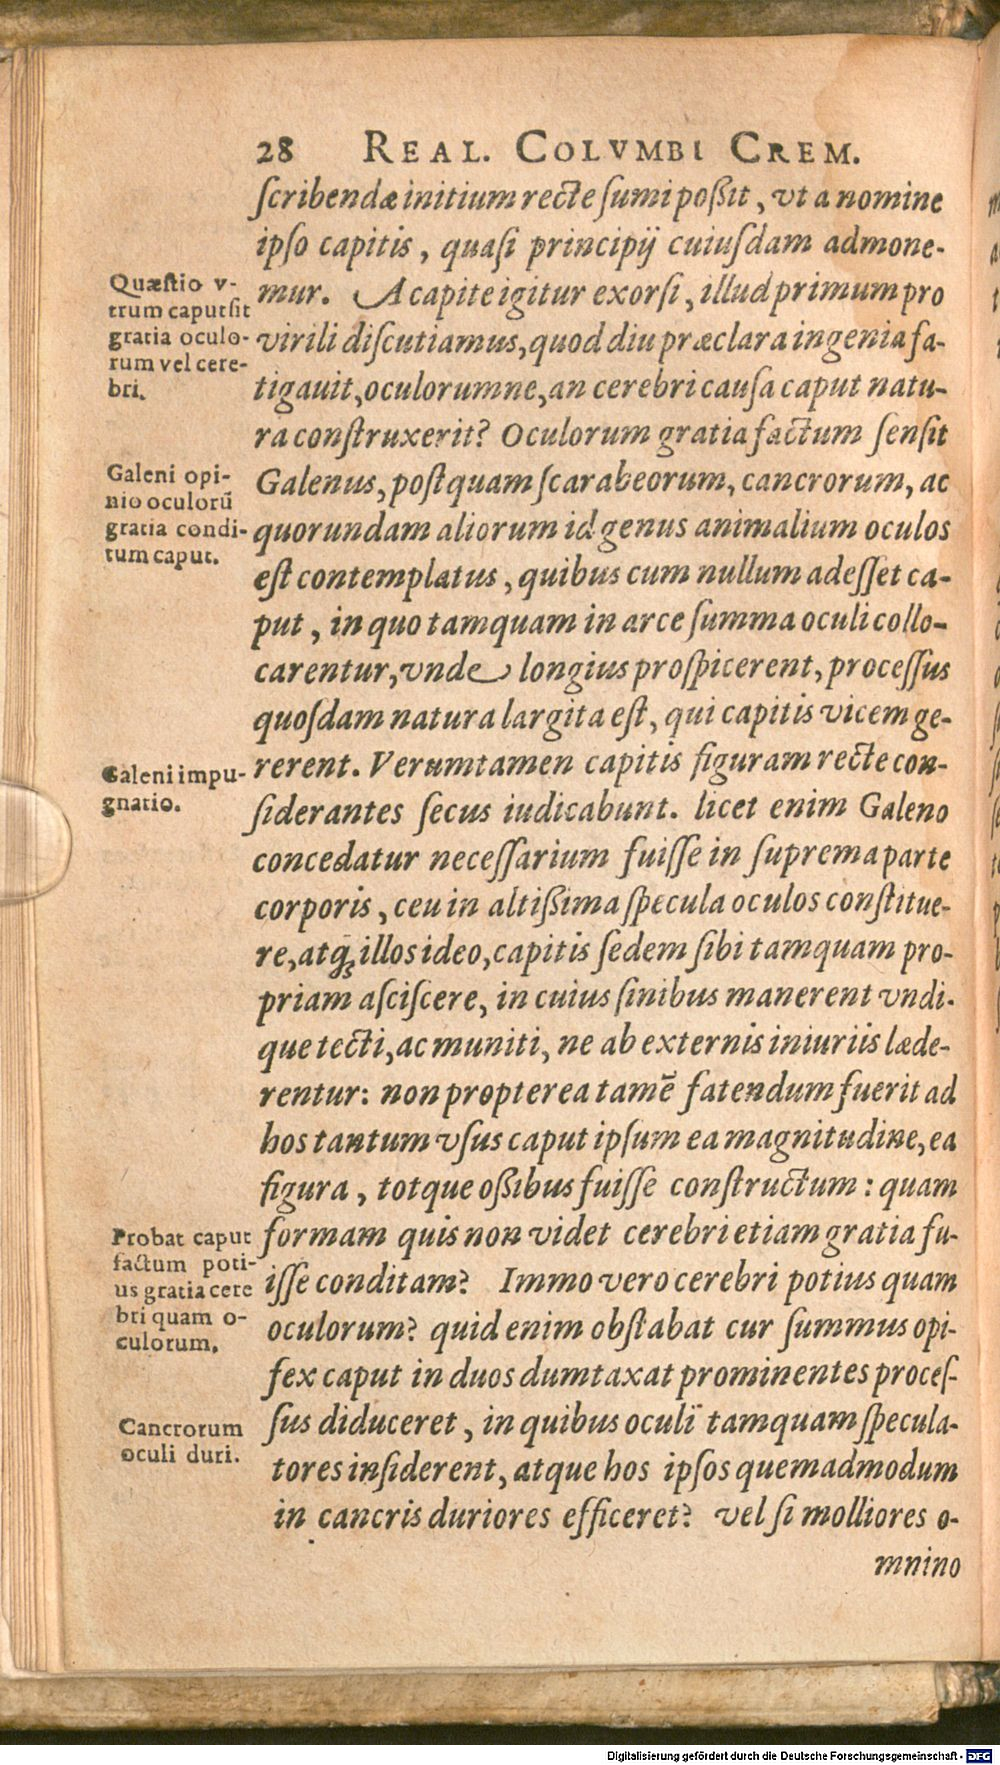 28 REAL. COLVMBI CREM.
ſcribendæ initium recte ſumi poßit, vt a nomine
ipſo capitis, quaſi principij cuiuſdam admone-
mur. A capite igitur exorſi, illud primum pro
virili diſcutiamus, quod diu præclara ingenia fa-
tigauit, oculorumne, an cerebri cauſa caput natu-
ra conſtruxerit? Oculorum gratia factum ſenſit
Galenus, poſtquam ſcarabeorum, cancrorum, ac
quorundam aliorum id genus animalium oculos
eſt contemplatus, quibus cum nullum adeſſet ca-
put, in quo tamquam in arce ſumma oculi collo-
carentur, vnde longius proſpicerent, proceſſus
quoſdam natura largita eſt, qui capitis vicem ge-
rerent. Verumtamen capitis figuram recte con-
ſiderantes ſecus iudicabunt. licet enim Galeno
concedatur neceſſarium fuiſſe in ſuprema parte
corporis, ceu in altißima ſpecula oculos conſtitue-
re, atq; illos ideo, capitis ſedem ſibi tamquam pro-
priam aſciſcere, in cuius ſinibus manerent vndi-
que tecti, ac muniti, ne ab externis iniuriis læde-
rentur: non propterea tamē fatendum fuerit ad
hos tantum vſus caput ipſum ea magnitudine, ea
figura, totque oßibus fuiſſe conſtructum: quam
formam quis non videt cerebri etiam gratia fu-
iſſe conditam? Immo vero cerebri potius quam
oculorum? quid enim obſtabat cur ſummus opi-
fex caput in duos dumtaxat prominentes proceſ-
ſus diduceret, in quibus oculi tamquam ſpecula-
tores inſiderent, atque hos ipſos quemadmodum
in cancris duriores efficeret? vel ſi molliores o-
mnino
Quæſtio v-
trum caput ſit
gratia oculo-
rum vel cere-
bri.
Galeni opi-
nio oculorū
gratia condi-
tum caput.
Galeni impu-
gnatio.
Probat caput
factum poti-
us gratia cere
bri quam o-
culorum.
Cancrorum
oculi duri.
Digitalisierung gefördert durch die Deutsche Forschungsgemeinschaft - DFG